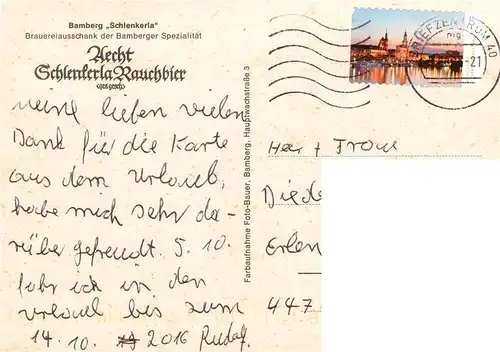 Bamberg „Schlenkerla"
Brauereiausschank der Bamberger Spezialität
Aecht
Schlenkerla Rauchbier
meine lieben vielen
Dank für die Karte
aus dem Urlaub,
habe mich sehr da-
rüber gefreudt. 5. 10.
fahr ich in den
Urlaub bis zum
14. 10. 2016 Rudolf.
Farbaufnahme Foto-Bauer, Bamberg, Hauptwachstraße 3
BRIEFZENTRUM 40
mg
-21
Herr + Frau
Diede
Erlen
447